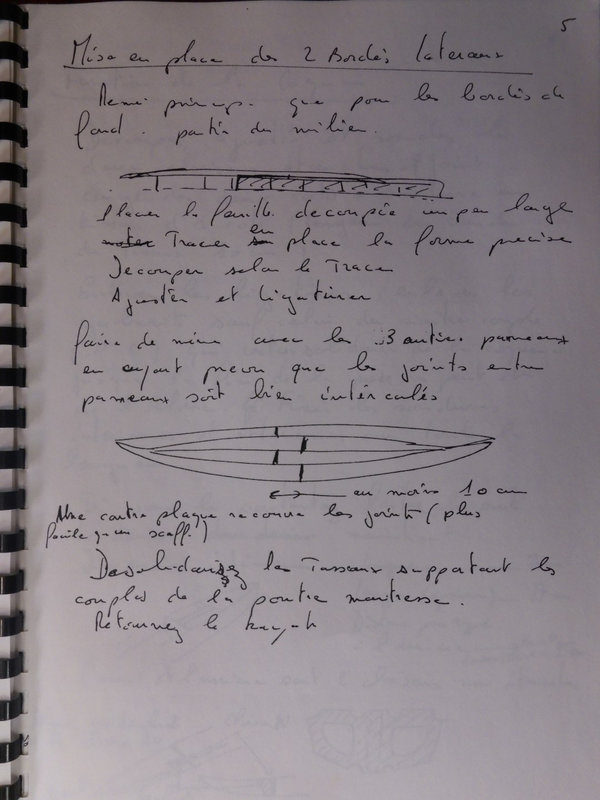 5
Mise en place des 2 Bordés lateraux
Meme princip. que pour les bordés de
fond. partir du milieu.
Placer la feuille decoupée un peu large
Tracer en place la forme precise
Decouper selon le Trace
Ajuster et ligaturer
faire de meme avec les 3 autres panneaux
en ayant prevu que les joints entre
panneaux soit bien intercalés
au moins 10 cm
Une contre plaque recouvre les joints (plus
facile qu'un scarf.)
Desolidarisez les Tasseaux supportant les
couples de la poutre maitresse.
Retournez le kayak